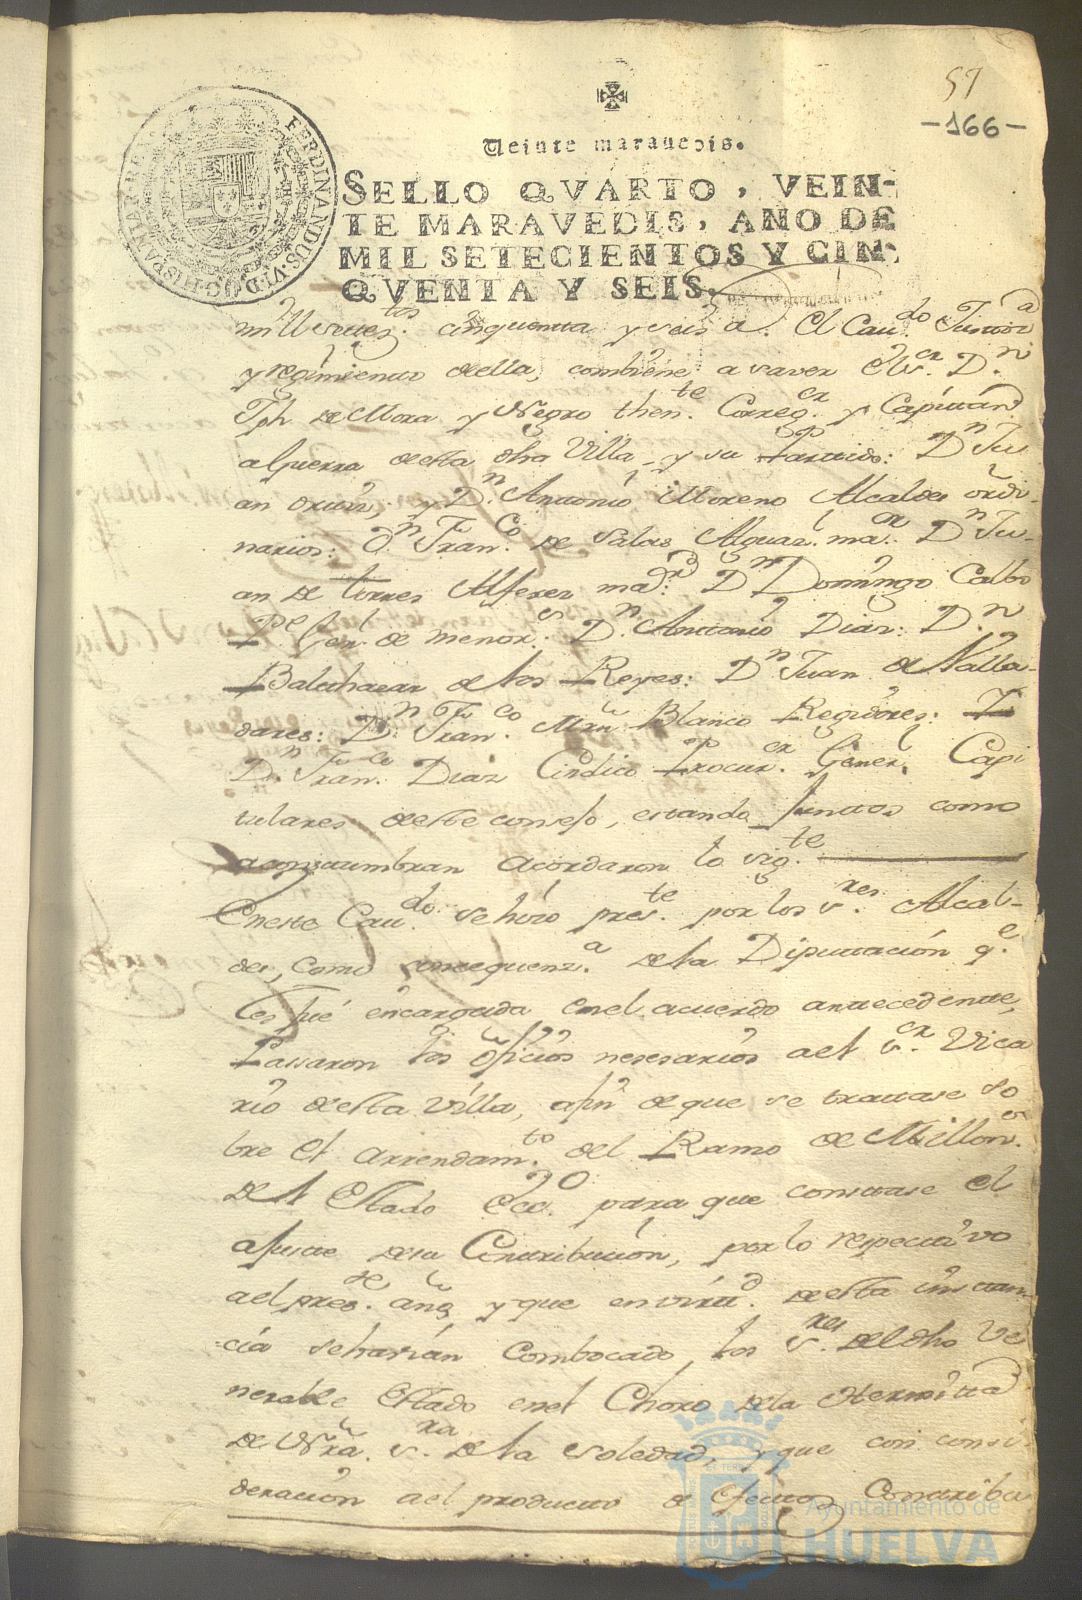 57
-166-
Veinte maravedis.
SELLO QVARTO, VEIN-
TE MARAVEDIS, AÑO DE
MIL SETECIENTOS Y CIN-
QVENTA Y SEIS.
FERDINANDUS.VI.D.G.HISPANIAR.REX
mill settes.tos cinquenta y seis a. El Cau.do Justtiz.a
y regimiento della, combiene a saver el s.or D.n
Jph de Mora y Negro then.te Correg.or y Capittán
a guerra desta dha Villa, y su Parttido: D.n Ju
an ortiz, y D.n Anttonio Moreno Alcaldes ordi-
narios: D.n Fran.co de Salas Alguaz.l ma.or D.n Ju-
an de torres Alferez ma.or D.n Domingo Calbo
P.e Gen.l de menor.s D.n Anttonio Diaz: D.n
Balthazar de los Reyes: D.n Juan de Valla-
dares: D.n Fran.co Mrn Blanco Regidores: Y
D.n Fran.co Diaz Cindico Procur.or Gener.l Capi
tulares deste consejo, estando Junttos como
acosttumbran acordaron lo sig.te
Eneste Cau.do se hizo pres.te por los s.res Alcal-
des, como consequenz.a de la Diputtación q.e
les fué encargada enel acuerdo anttecedentte,
Passaron los oficios nesesarios ael s.or Vica
rio desta Villa, a fin de que se trattase so
bre el arrendam.to del Ramo de Millon.s
del Estado Ecc.o para que consttase el
ajuste desu Conttribución, por lo respecttivo
ael pres.te año, y que en virtu.d desta insttan-
cia se havian combocado los s.res del dho Ve
nerable Estado enel Choro dela Hermitta
de Nra. s.ra de la Soledad, y que con consi
deración ael productto de efecttos Conttribu
Ayuntamiento de
HUELVA